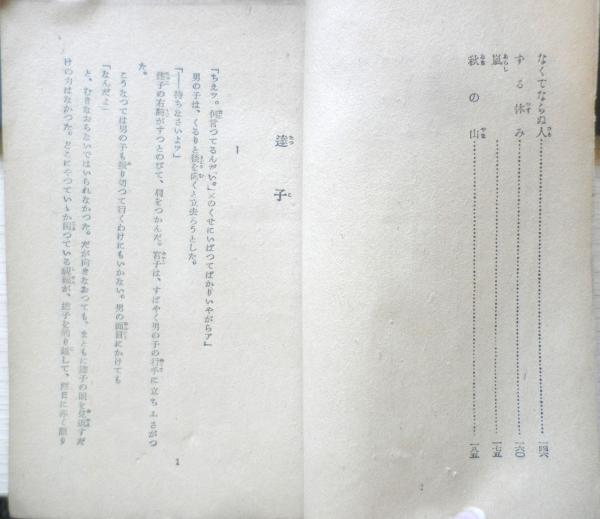 なくてならぬ人……一四六
ずる休み……一六〇
嵐……一七五
秋の山……一八五
達子
1
「ちえツ。何言つてるんだい。女のくせにいばつてばかりいやがらア」
男の子は、くるりと後を向くと立去ろうとした。
「――待ちなさいよツ」
達子の右腕がすつとのびて、肩をつかんだ。達子は、すばやく男の子の行手に立ちふさがつ
た。
こうなつては男の子も振り切つて行くわけにもいかない。男の面目にかけても
「なんだよ」
と、むきなおらないではいられなかつた。だが向きなおつても、まともに達子の眼を見返すだ
けの力はなかつた。どこにそつていゝか
達子を
1